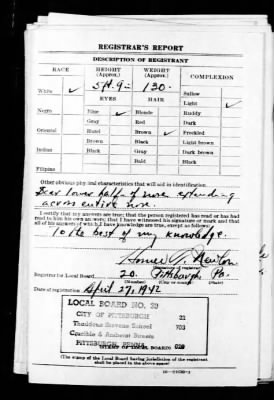 REGISTRAR'S REPORT
DESCRIPTION OF REGISTRANT
RACE HEIGHT (Approx.) WEIGHT (Approx.) COMPLEXION
White ✓ 5 ft. 9 130 Sallow
EYES HAIR Light ✓
Negro Blue ✓ Blonde Ruddy
Gray Red Dark
Oriental Hazel Brown ✓ Freckled
Brown Black Light brown
Indian Black Gray Dark brown
Bald Black
Filipino
Other obvious physical characteristics that will aid in identification
lower half of nose extending
across entire nose.
I certify that my answers are true; that the person registered has read or has had
read to him his own answers; that I have witnessed his signature or mark and that
all of his answers of which I have knowledge are true, except as follows:
To the best of my knowledge.
Registrar for Local Board 20 Pittsburgh Pa.
(Number) (City or county) (State)
Date of registration April 27, 1942
LOCAL BOARD NO. 20
CITY OF PITTSBURGH 21
Thaddeus Stevens School 703
Crucible & Amherst Streets
PITTSBURGH, PENNA. 020
(STAMP OF LOCAL BOARD)
(The stamp of the Local Board having jurisdiction of the registrant
shall be placed in the above space)